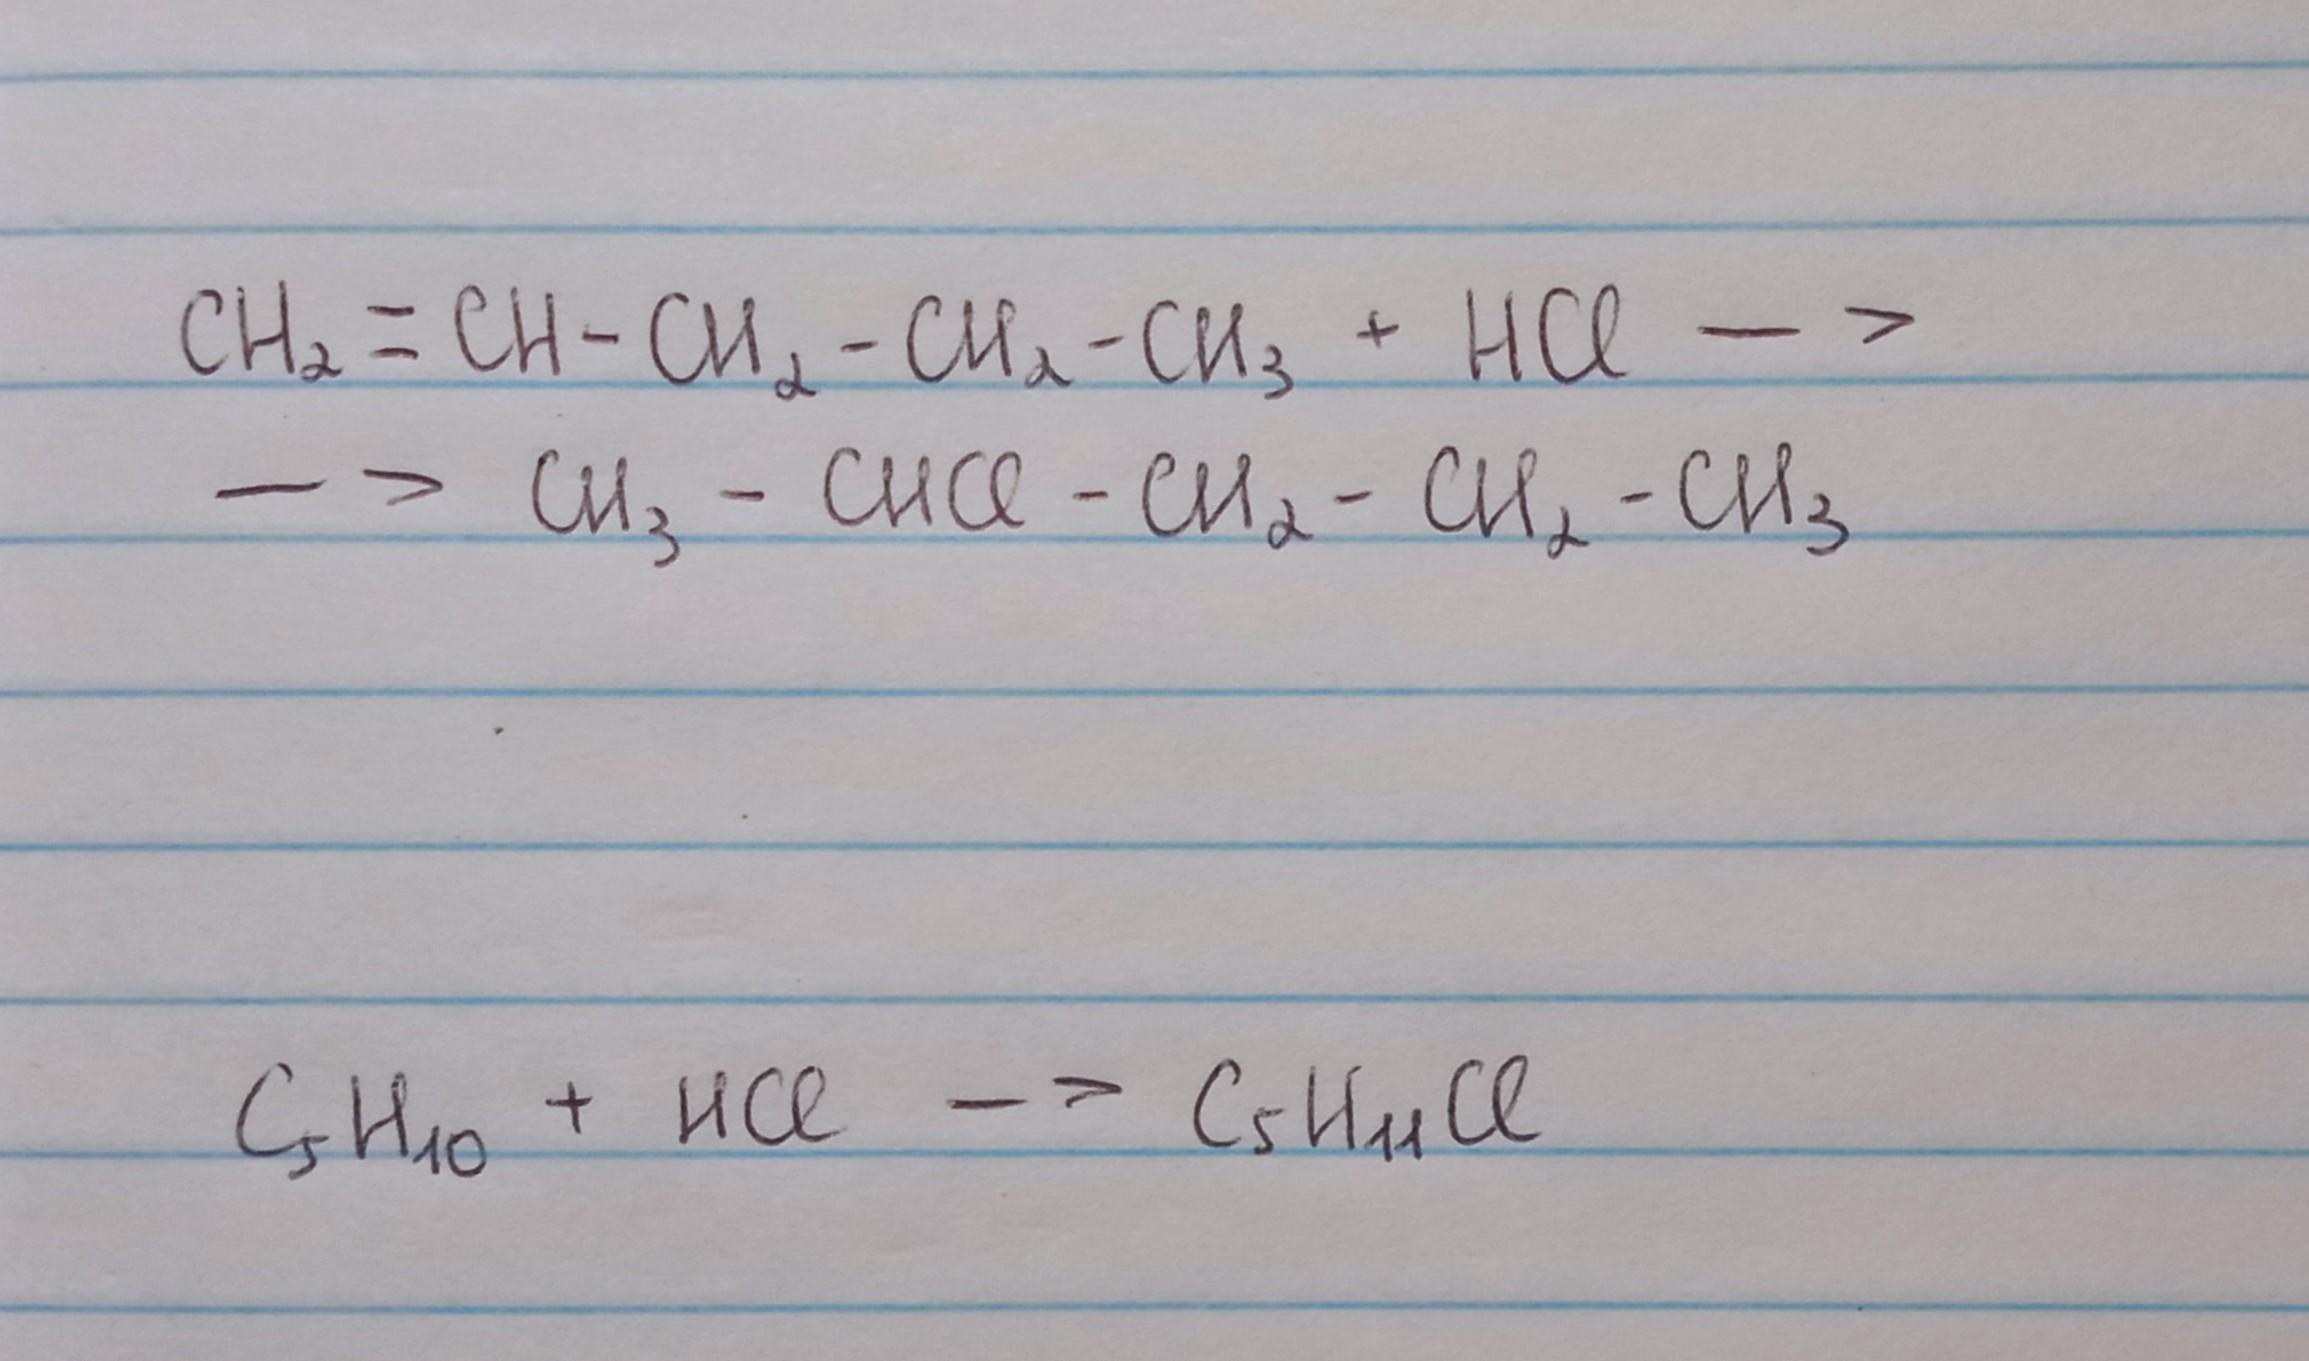 CH₂=CH-CH₂-CH₂-CH₃ + HCl —>
—> CH₃ - CHCl - CH₂ - CH₂ - CH₃
C₅H₁₀ + HCl —> C₅H₁₁Cl